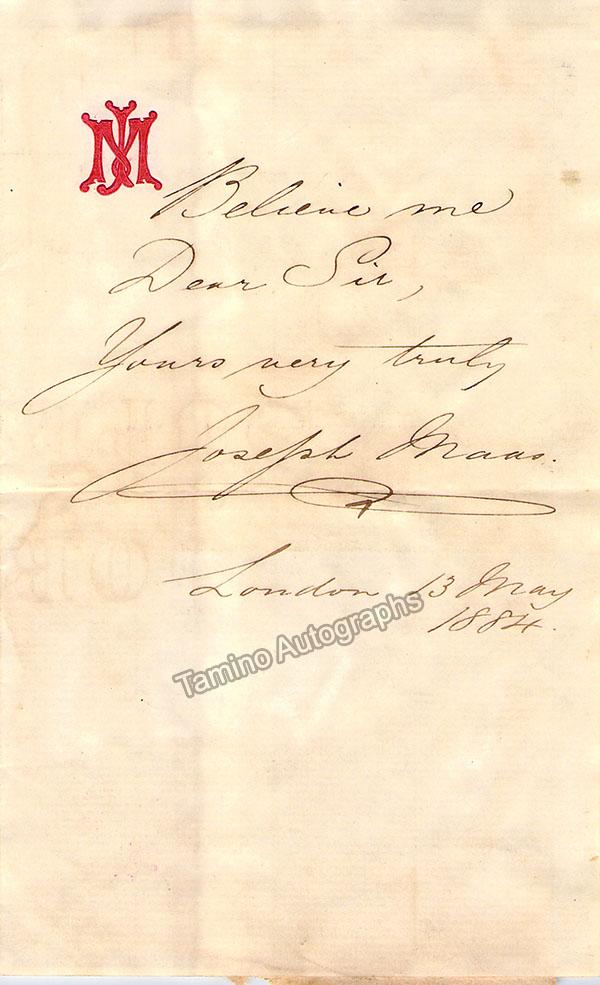 JM
Believe me
Dear Sir,
Yours very truly
Joseph Maas.
London 13 May
1884.
Tamino Autographs